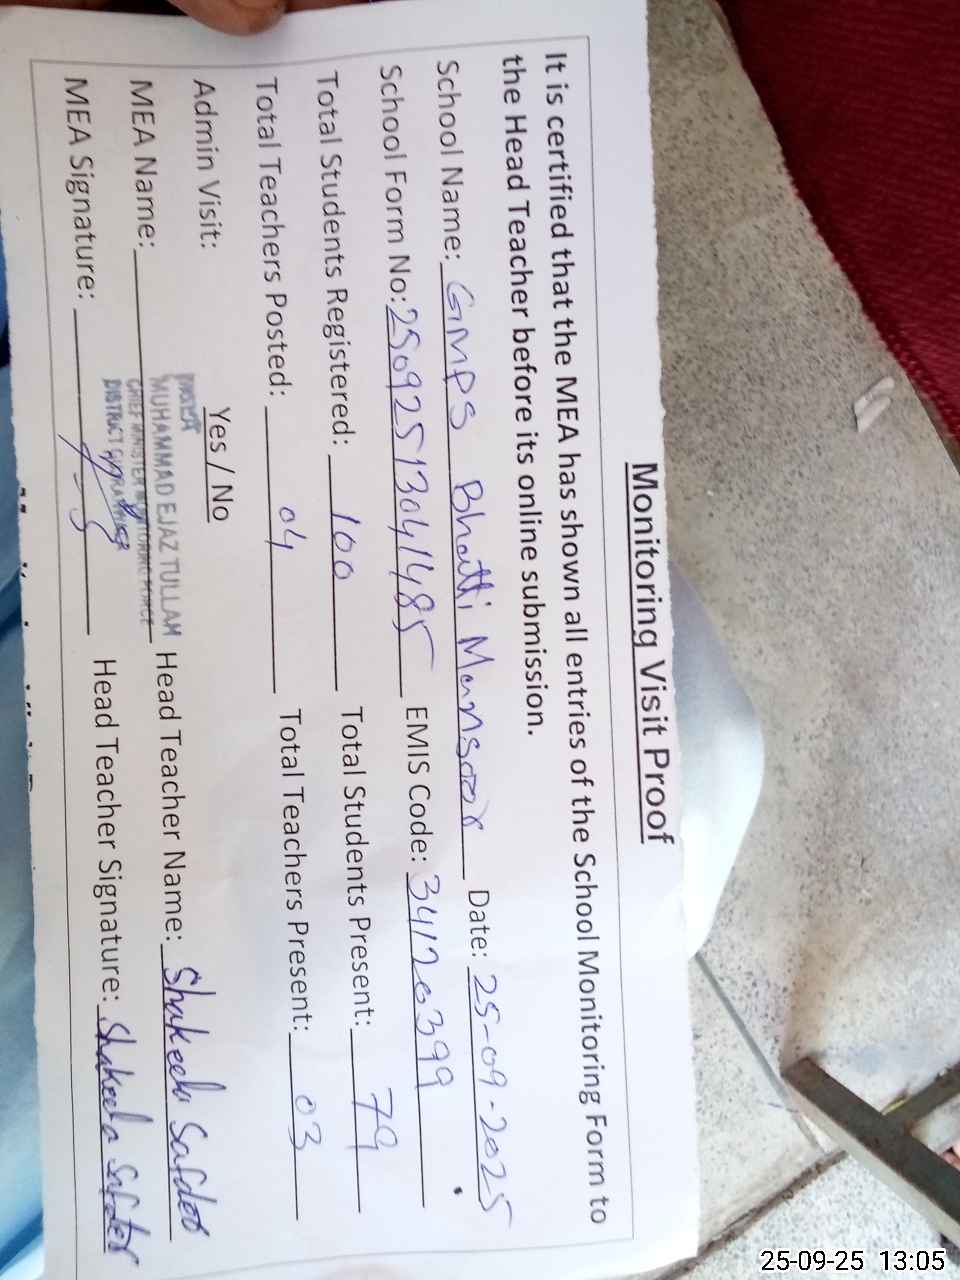 Monitoring Visit Proof
It is certified that the MEA has shown all entries of the School Monitoring Form to
the Head Teacher before its online submission.
School Name: GMPS Bhatti Mansoor Date: 25-09-2025
School Form No: 25092513041485 EMIS Code: 34120399
Total Students Registered: 100 Total Students Present: 79
Total Teachers Posted: 04 Total Teachers Present: 03
Admin Visit: Yes / No
MEA Name: MUHAMMAD EJAZ TULLAH Head Teacher Name: Shakeela Safder
CHIEF MINISTER MONITORING FORCE
DISTRICT
MEA Signature: Head Teacher Signature: Shakeela Safder
25-09-25 13:05